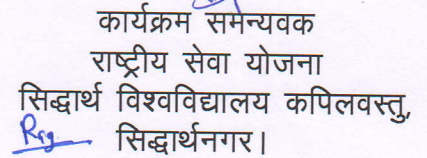 कार्यक्रम समन्यवक
राष्ट्रीय सेवा योजना
सिद्धार्थ विश्वविद्यालय कपिलवस्तु,
सिद्धार्थनगर।